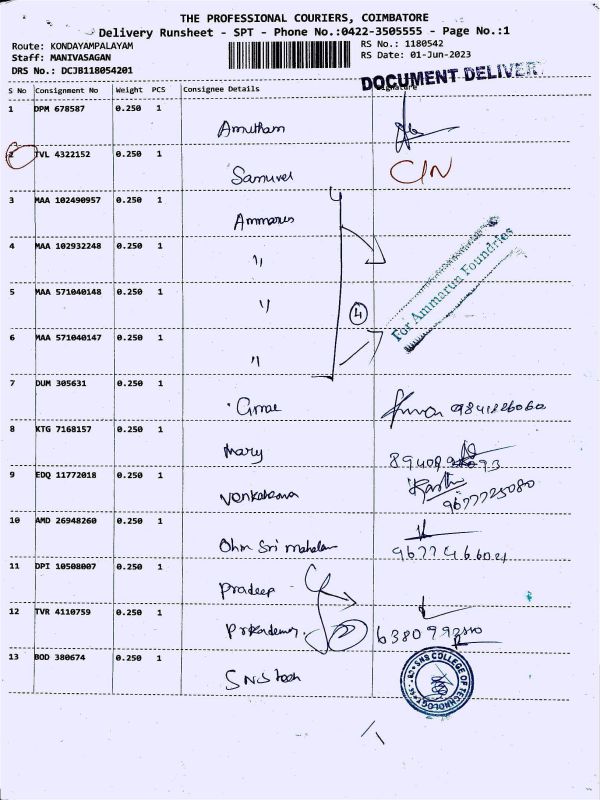 THE PROFESSIONAL COURIERS, COIMBATORE
Delivery Runsheet - SPT - Phone No.:0422-3505555 - Page No.:1
Route: KONDAYAMPALAYAM
RS No.: 1180542
Staff: MANIVASAGAN
RS Date: 01-Jun-2023
DRS No.: DCJB118054201
DOCUMENT DELIVER
S No Consignment No Weight PCS Consignee Details Signature
1 DPM 678587 0.250 1
Amutham
2 TVL 4322152 0.250 1
Samuvel CIN
3 MAA 102490957 0.250 1
4 MAA 102932248 0.250 1
"
5 MAA 571040148 0.250 1
" 4
For Ammarun Foundries
6 MAA 571040147 0.250 1
"
7 DUM 305631 0.250 1
8 KTG 7168157 0.250 1
Mary
9 EDQ 11772018 0.250 1
9677725080
10 AMD 26948260 0.250 1
Ohm Sri Mahalam 9677466604
11 DPI 10508007 0.250 1
Pradeep
12 TVR 4110759 0.250 1
2
13 BOD 380674 0.250 1
SNS tech
SNS COLLEGE OF TECHNOLOGY